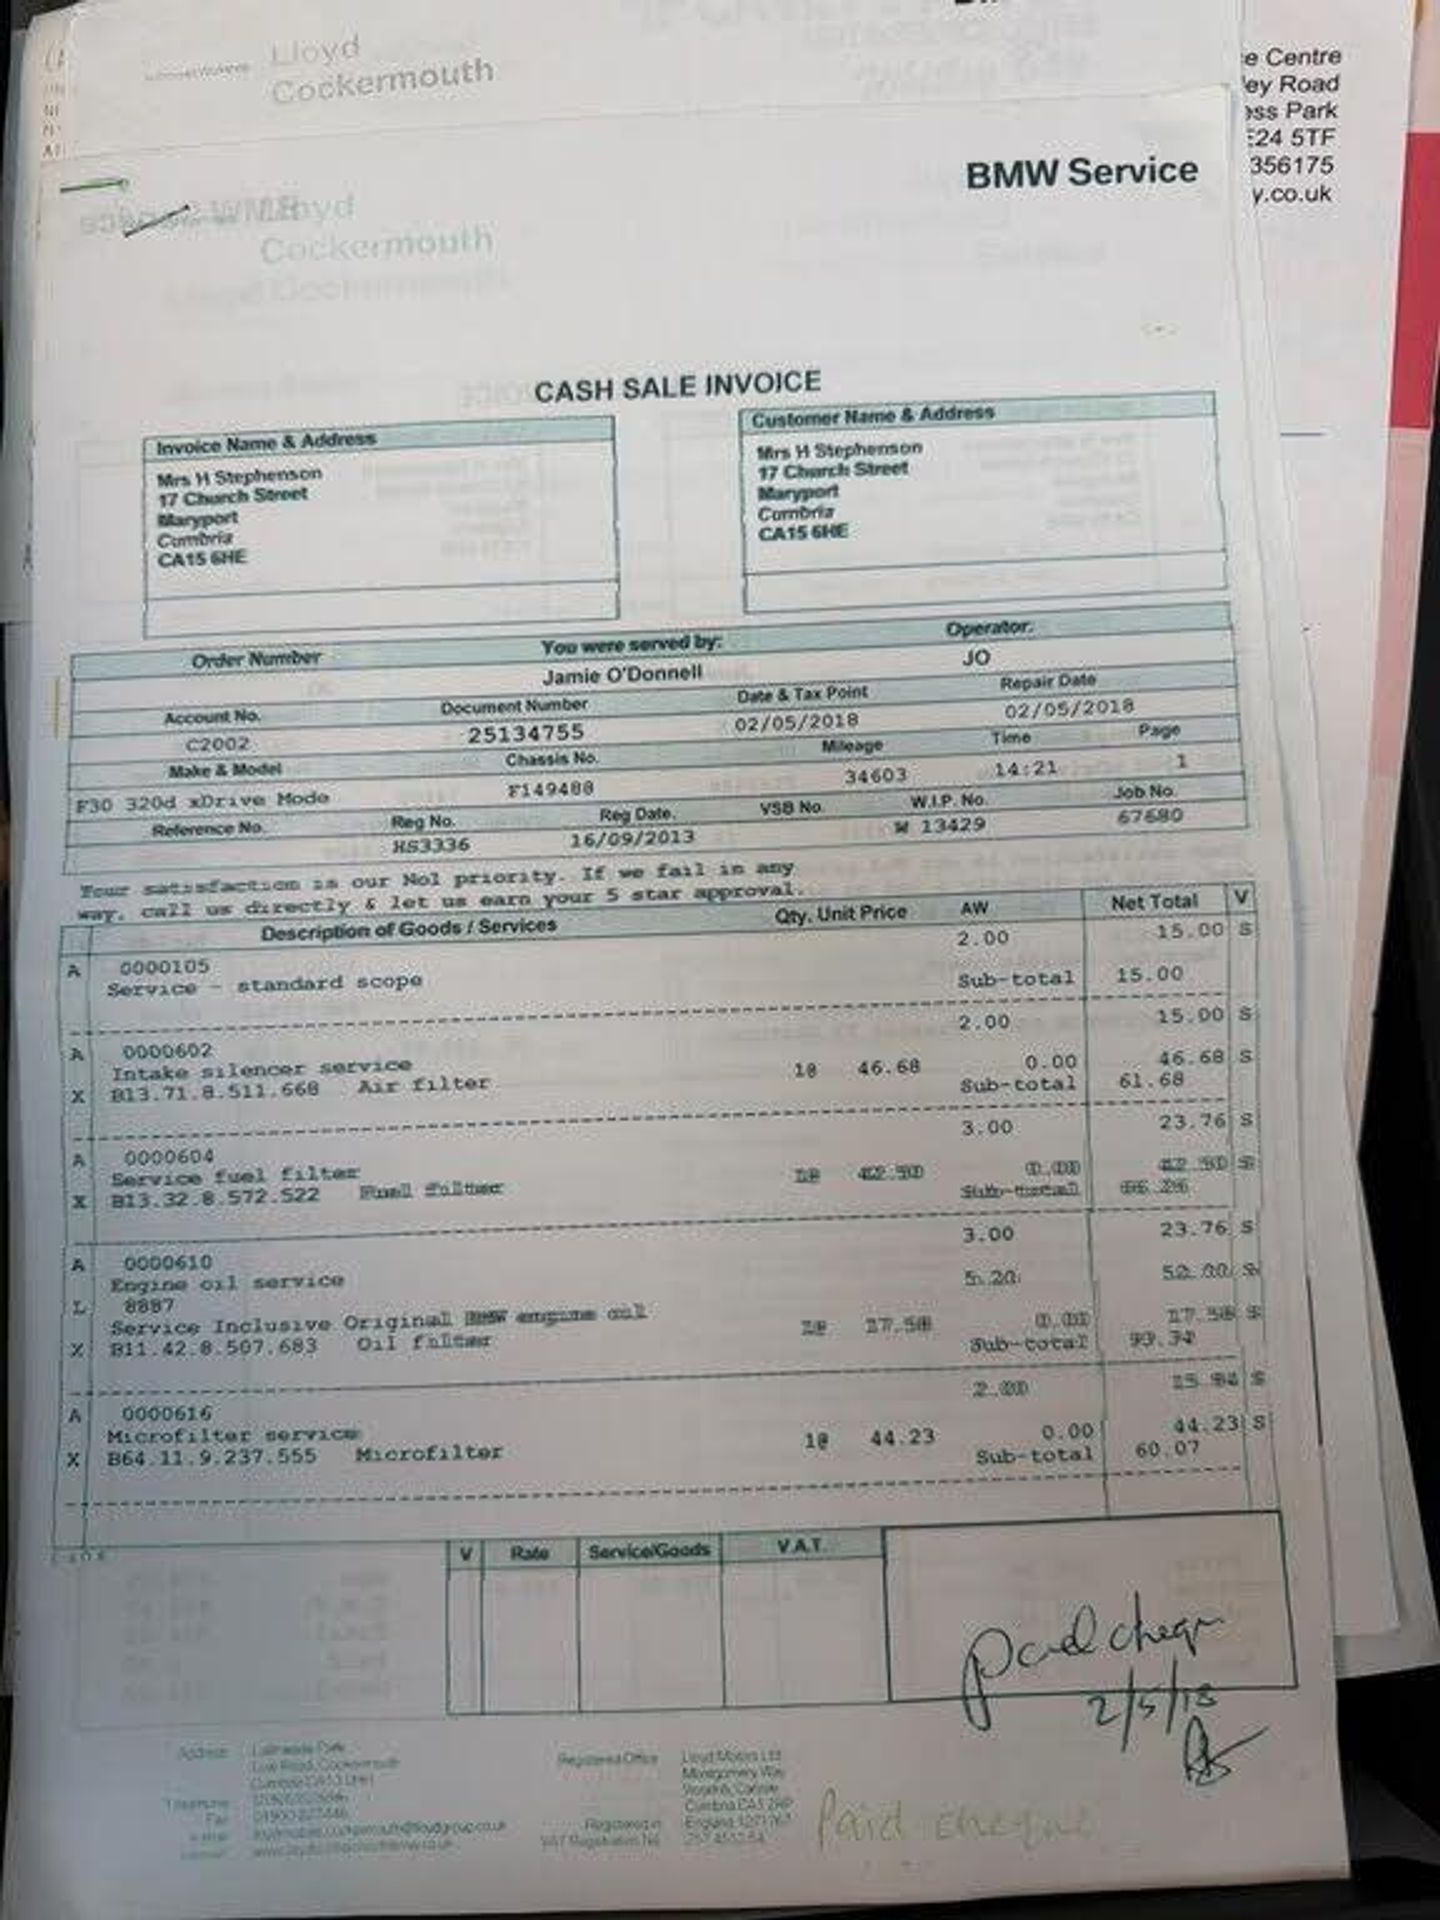 Lloyd
Cockermouth
e Centre
ey Road
ess Park
E24 5TF
356175
y.co.uk
BMW Service
Lloyd
Cockermouth
CASH SALE INVOICE
Invoice Name & Address
Mrs H Stephenson
17 Church Street
Maryport
Cumbria
CA15 6HE
Customer Name & Address
Mrs H Stephenson
17 Church Street
Maryport
Cumbria
CA15 6HE
Order Number You were served by: Operator.
Jamie O'Donnell JO
Account No. Document Number Date & Tax Point Repair Date
C2002 25134755 02/05/2018 02/05/2018
Make & Model Chassis No. Mileage Time Page
F30 320d xDrive Mode F149488 34603 14:21 1
Reference No. Reg No. Reg Date. VSB No. W.I.P. No. Job No.
HS3336 16/09/2013 W 13429 67680
Your satisfaction is our No1 priority. If we fail in any
way, call us directly & let us earn your 5 star approval.
Description of Goods / Services Qty. Unit Price AW Net Total V
A 0000105 2.00 15.00 S
Service - standard scope Sub-total 15.00
A 0000602 2.00 15.00 S
Intake silencer service
X B13.71.8.511.668 Air filter 1@ 46.68 0.00 46.68 S
Sub-total 61.68
A 0000604 3.00 23.76 S
Service fuel filter
X B13.32.8.572.522 Fuel filter 1@ 42.50 0.00 42.50 S
Sub-total 66.26
A 0000610 3.00 23.76 S
Engine oil service
L 8887 5.20 52.00 S
Service Inclusive Original BMW engine oil
X B11.42.8.507.683 Oil filter 1@ 17.58 0.00 17.58 S
Sub-total 93.34
A 0000616 2.00 15.84 S
Microfilter service
X B64.11.9.237.555 Microfilter 1@ 44.23 0.00 44.23 S
Sub-total 60.07
V Rate Service/Goods V.A.T.
paid cheque
2/5/18
Address
Low Road, Cockermouth
Telephone
Fax
Registered Office Lloyd Motors Ltd
Montgomery Way
Carlisle
Registered in England
VAT Registration No
Paid cheque